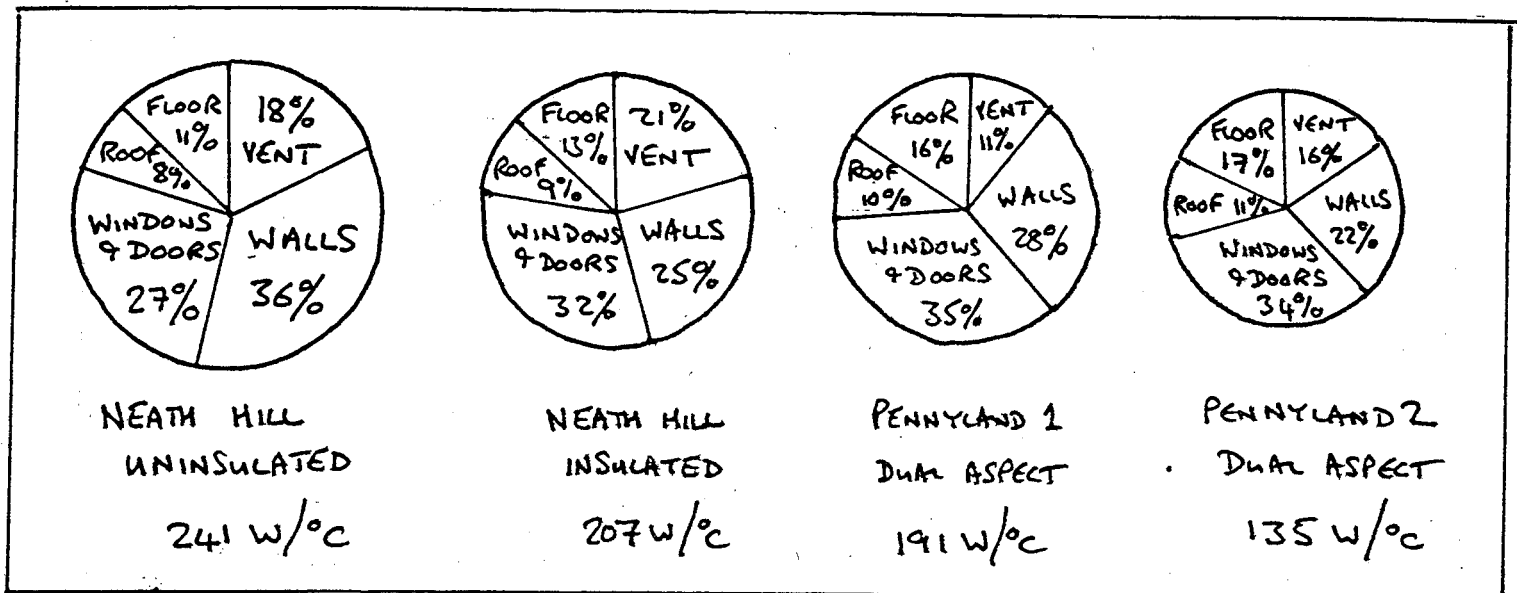 FLOOR
11%
18%
VENT
ROOF
8%
WINDOWS
& DOORS
27%
WALLS
36%
NEATH HILL
UNINSULATED
241 W/°C
FLOOR
13%
21%
VENT
ROOF
9%
WINDOWS
& DOORS
32%
WALLS
25%
NEATH HILL
INSULATED
207 W/°C
FLOOR
16%
VENT
11%
ROOF
10%
WALLS
28%
WINDOWS
& DOORS
35%
PENNYLAND 1
DUAL ASPECT
191 W/°C
FLOOR
17%
VENT
16%
ROOF 11%
WALLS
22%
WINDOWS
& DOORS
34%
PENNYLAND 2
DUAL ASPECT
135 W/°C